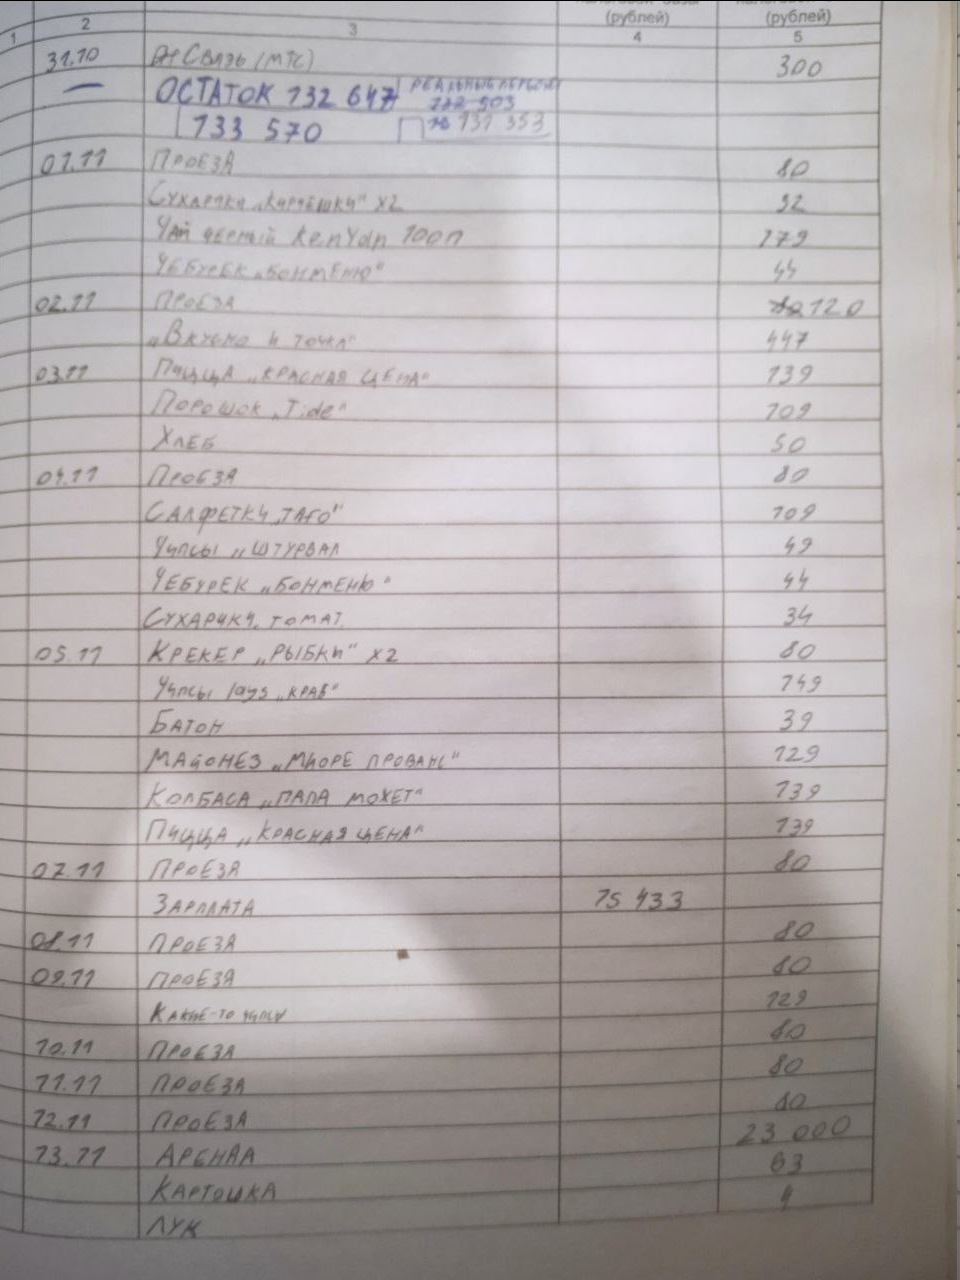 (рублей) (рублей)
1 2 3 4 5
31.10 Связь (МТС) 300
— ОСТАТОК 132 647 РЕАЛЬНЫЕ
133 570 131 353
01.11 ПРОЕЗД 80
СУХАРИКИ „КИРИЕШКИ“ X2 92
ЧАЙ ЧЕРНЫЙ 100П 179
ЧЕБУРЕК „БОНМЕНЮ“ 44
02.11 ПРОЕЗД 120
„ВКУСНО И ТОЧКА“ 447
03.11 ПИЦЦА „КРАСНАЯ ЦЕНА“ 139
ПОРОШОК „Tide“ 109
ХЛЕБ 50
04.11 ПРОЕЗД 80
САЛФЕТКИ „TAFO“ 109
ЧИПСЫ „ШТУРВАЛ 49
ЧЕБУРЕК „БОНМЕНЮ“ 44
СУХАРИКИ. ТОМАТ. 34
05.11 КРЕКЕР „РЫБКИ“ X2 80
ЧИПСЫ lays „КРАБ“ 149
БАТОН 39
МАЙОНЕЗ „МЮРЕ ПРОВАНС“ 129
КОЛБАСА „ПАПА МОЖЕТ“ 139
ПИЦЦА „КРАСНАЯ ЦЕНА“ 139
07.11 ПРОЕЗД 80
ЗАРПЛАТА 15 433
08.11 ПРОЕЗД 80
09.11 ПРОЕЗД 80
КАКИЕ-ТО ЧИПСЫ 129
10.11 ПРОЕЗД 80
11.11 ПРОЕЗД 80
12.11 ПРОЕЗД 80
13.11 АРЕНДА 23 000
КАРТОШКА 63
ЛУК 4